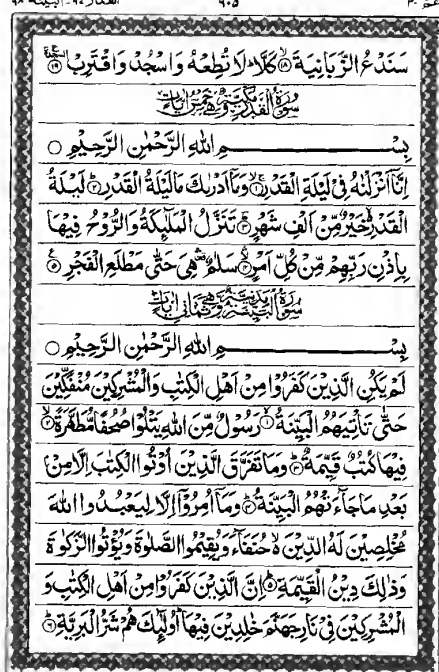 ٦٠٥
سَنَدْعُ الزَّبَانِيَةَ ﴿١٨﴾ كَلَّا لَا تُطِعْهُ وَاسْجُدْ وَاقْتَرِبْ ﴿١٩﴾
سُوْرَةُ الْقَدْرِ مَكِّيَّةٌ وَّهِيَ خَمْسُ اٰيَاتٍ
بِسْمِ اللهِ الرَّحْمٰنِ الرَّحِيْمِ
اِنَّاۤ اَنْزَلْنٰهُ فِيْ لَيْلَةِ الْقَدْرِ ﴿١﴾ وَمَاۤ اَدْرٰىكَ مَا لَيْلَةُ الْقَدْرِ ﴿٢﴾ لَيْلَةُ
الْقَدْرِ خَيْرٌ مِّنْ اَلْفِ شَهْرٍ ﴿٣﴾ تَنَزَّلُ الْمَلٰٓئِكَةُ وَالرُّوْحُ فِيْهَا
بِاِذْنِ رَبِّهِمْ مِّنْ كُلِّ اَمْرٍ ﴿٤﴾ سَلٰمٌ هِيَ حَتّٰى مَطْلَعِ الْفَجْرِ ﴿٥﴾
سُوْرَةُ الْبَيِّنَةِ مَدَنِيَّةٌ وَّهِيَ ثَمَانِيْ اٰيَاتٍ
بِسْمِ اللهِ الرَّحْمٰنِ الرَّحِيْمِ
لَمْ يَكُنِ الَّذِيْنَ كَفَرُوْا مِنْ اَهْلِ الْكِتٰبِ وَالْمُشْرِكِيْنَ مُنْفَكِّيْنَ
حَتّٰى تَاْتِيَهُمُ الْبَيِّنَةُ ﴿١﴾ رَسُوْلٌ مِّنَ اللهِ يَتْلُوْا صُحُفًا مُّطَهَّرَةً ﴿٢﴾
فِيْهَا كُتُبٌ قَيِّمَةٌ ﴿٣﴾ وَمَا تَفَرَّقَ الَّذِيْنَ اُوْتُوا الْكِتٰبَ اِلَّا مِنْۢ
بَعْدِ مَا جَآءَتْهُمُ الْبَيِّنَةُ ﴿٤﴾ وَمَاۤ اُمِرُوْۤا اِلَّا لِيَعْبُدُوا اللهَ
مُخْلِصِيْنَ لَهُ الدِّيْنَ حُنَفَآءَ وَيُقِيْمُوا الصَّلٰوةَ وَيُؤْتُوا الزَّكٰوةَ
وَذٰلِكَ دِيْنُ الْقَيِّمَةِ ﴿٥﴾ اِنَّ الَّذِيْنَ كَفَرُوْا مِنْ اَهْلِ الْكِتٰبِ وَ
الْمُشْرِكِيْنَ فِيْ نَارِ جَهَنَّمَ خٰلِدِيْنَ فِيْهَا اُولٰٓئِكَ هُمْ شَرُّ الْبَرِيَّةِ ﴿٦﴾